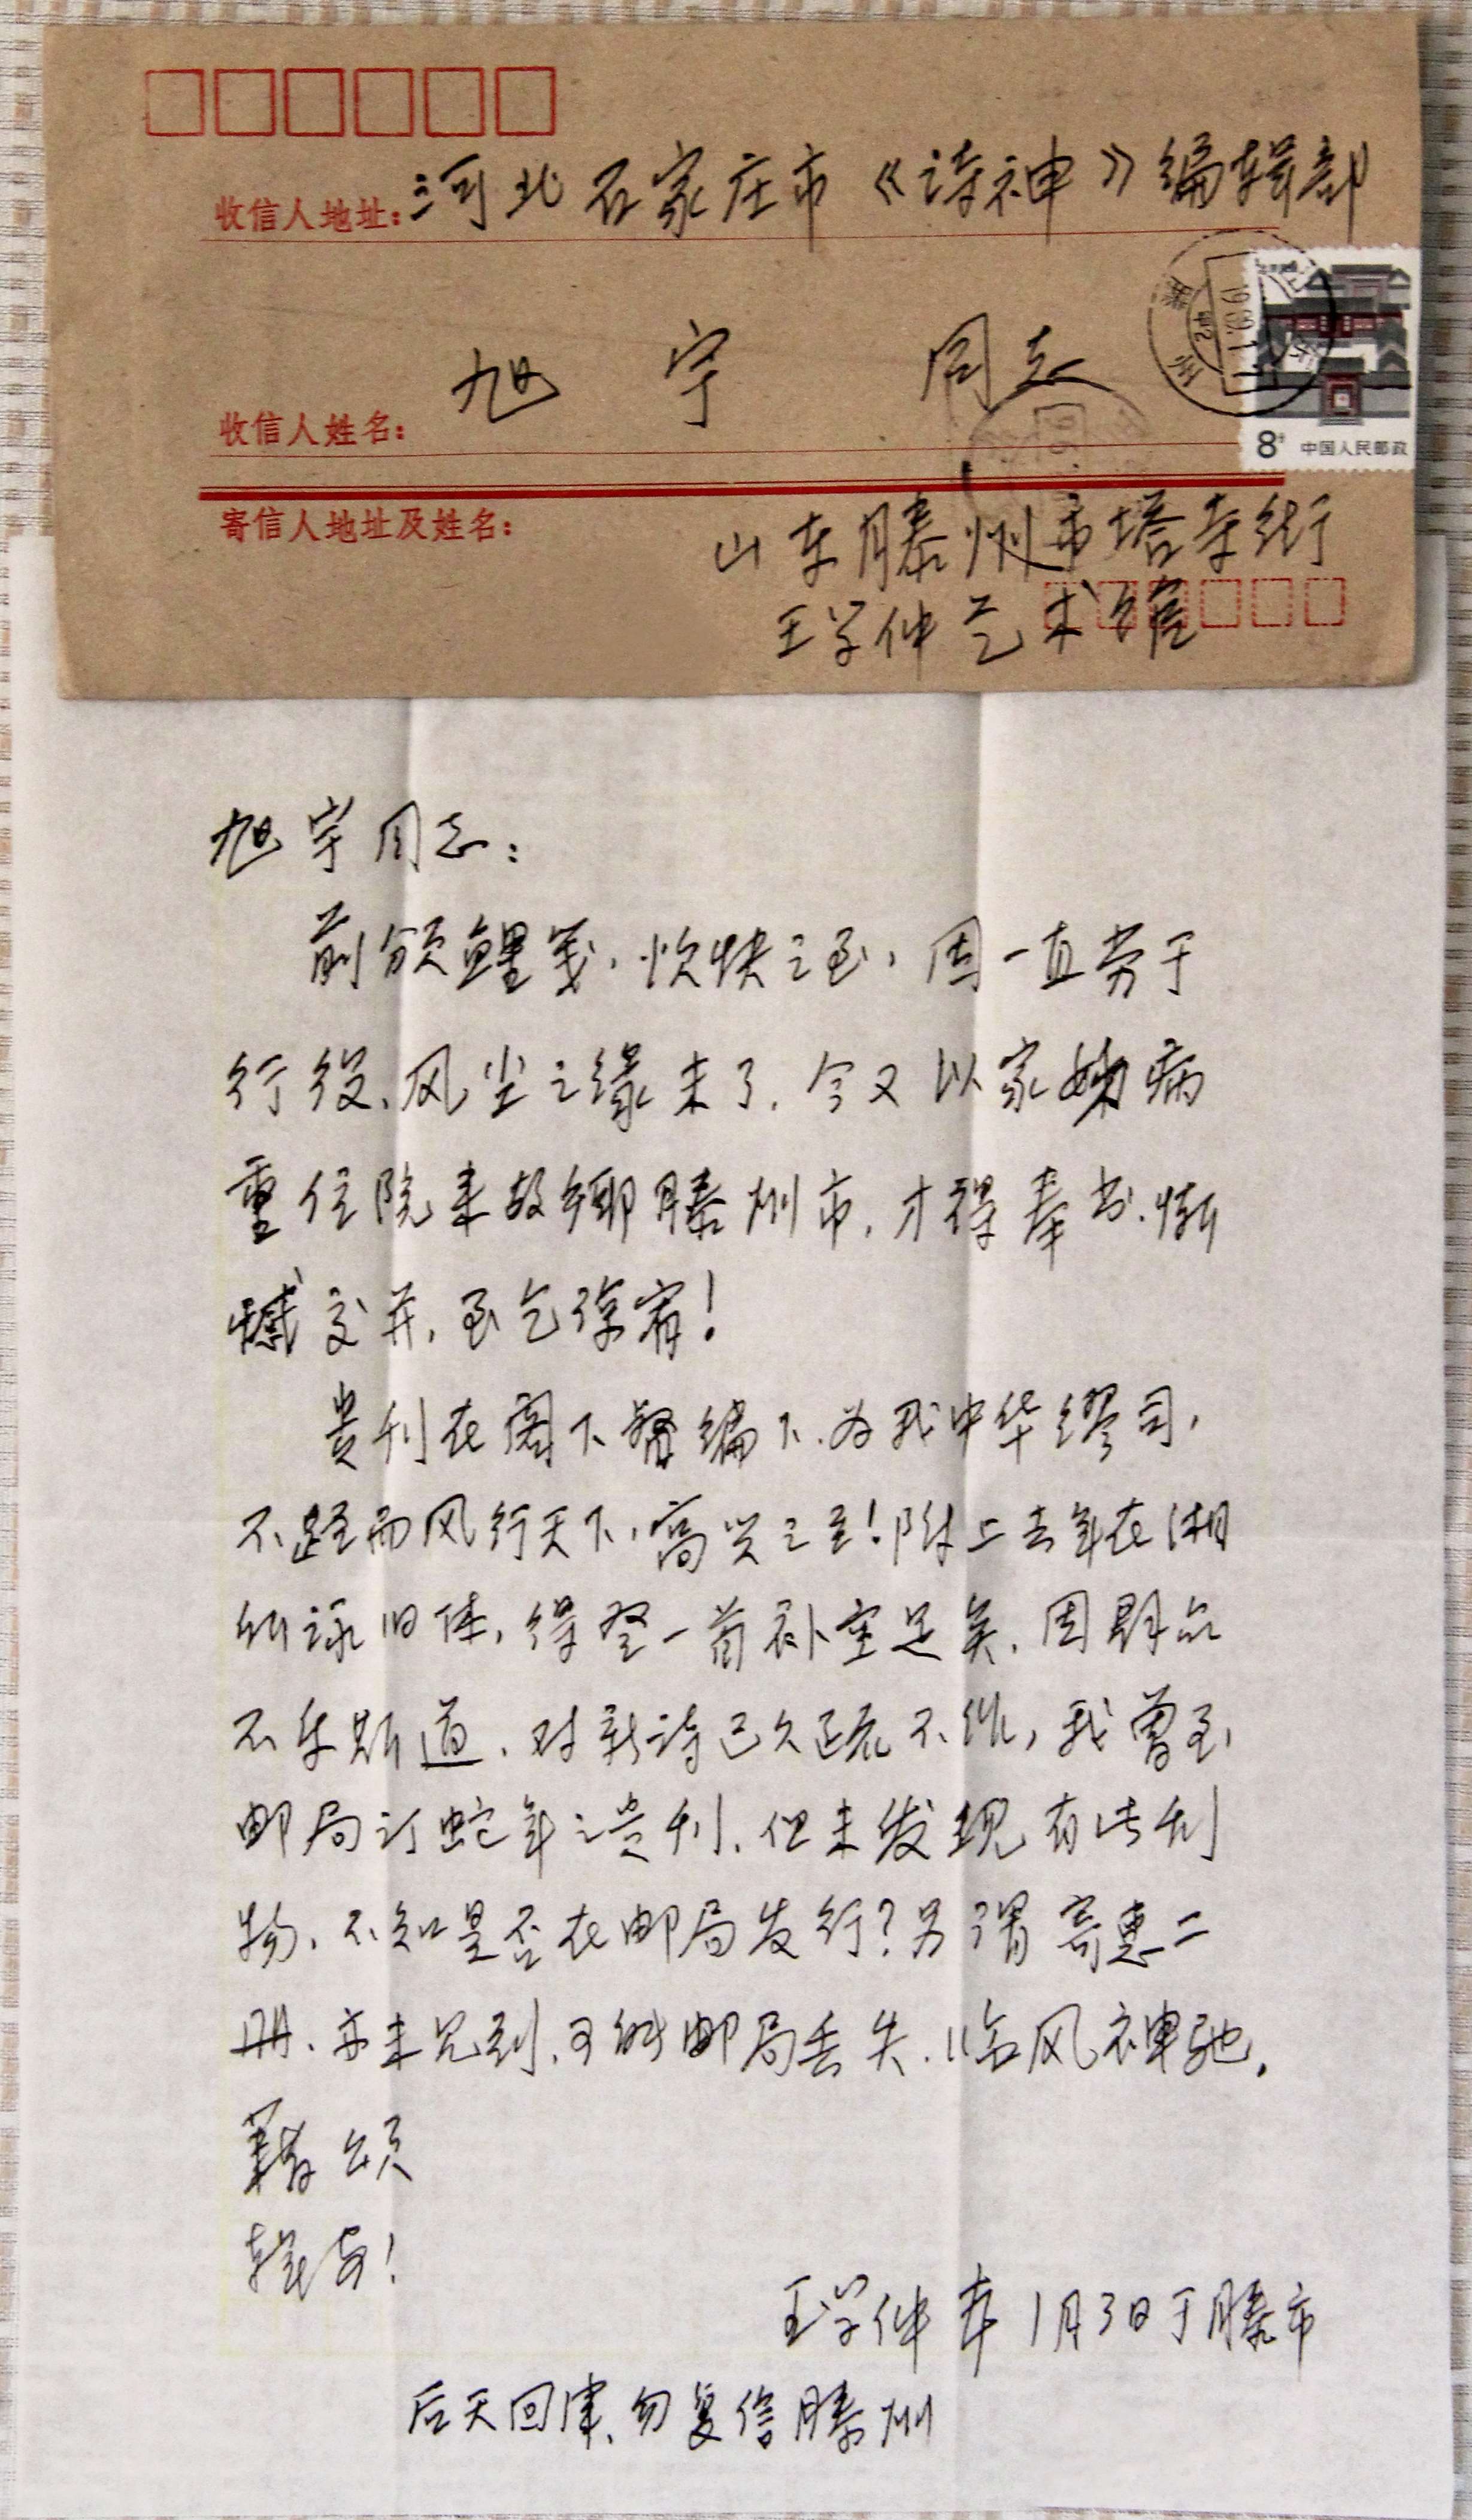 收信人地址：河北石家庄市《诗神》编辑部
收信人姓名：旭宇 同志
8分 中国人民邮政
寄信人地址及姓名：山东滕州市塔寺街
王学仲艺术馆
旭宇同志：
前颁鲤笺，忻快之至，因一直劳于
行役、风尘之缘未了，今又以家姊病
重住院来故乡滕州市，才得奉书，惭
憾交并，至乞谅宥！
贵刊在阁下督编下，为我中华缪司，
不胫而风行天下，高兴之至！附上去年在湘
所咏旧体，得登一首补空足矣，因群众
不乐斯道，对新诗已久疏不作，我曾至
邮局订蛇年之贵刊，但未发现有此刊
物，不知是否在邮局发行？另谓寄惠二
册，亦未见到，可能邮局丢失，临风神驰。
颂
王学仲 奉 1月3日于滕市
后天回津，勿复信滕州